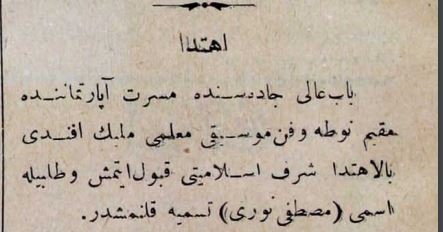 اهتدا
باب عالی جاده‌سنده مسرت آپارتماننده
مقیم نوطه و فن موسیقی معلمی ملبك افندی
بالاهتدا شرف اسلامیتی قبول ایتمش و طابیله
اسمی (مصطفی نوری) تسمیه قلنمشدر.